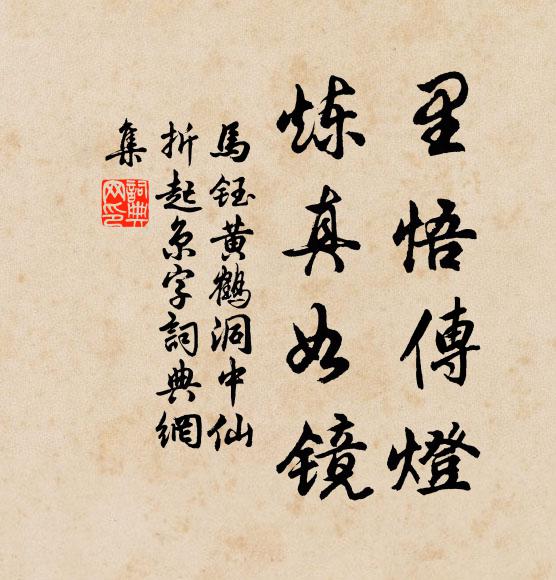 里悟傳燈
炼真如镜
馬鈺黄鶴洞中仙
折起京字詞典網
集
詞典網印